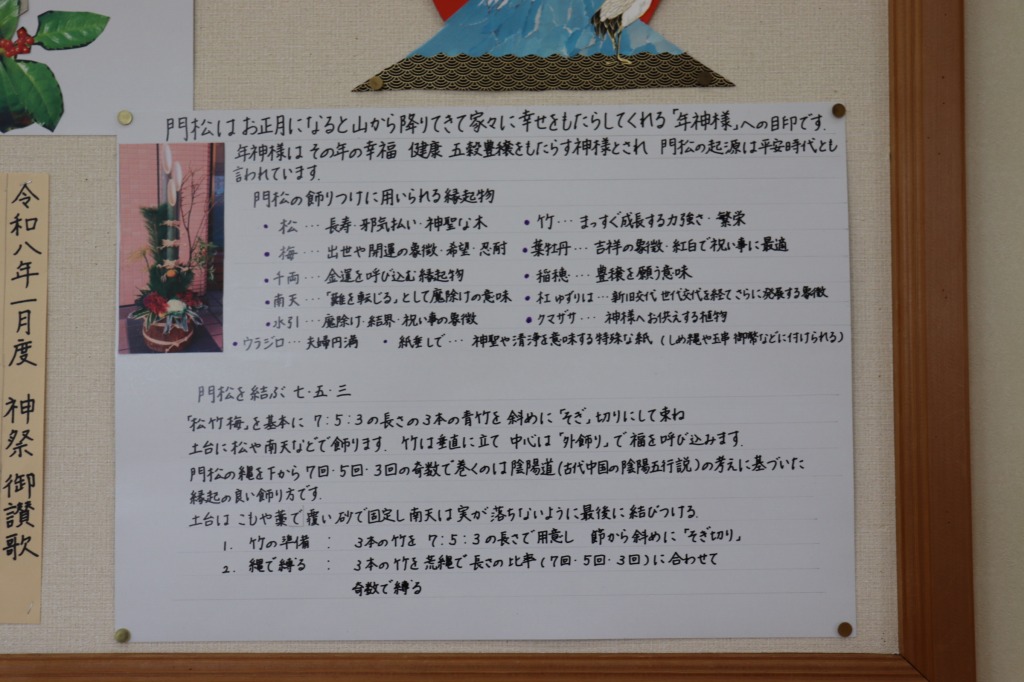 令和八年一月度 神祭 御讃歌
門松はお正月になると山から降りてきて家々に幸せをもたらしてくれる「年神様」への目印です.
年神様は その年の幸福 健康 五穀豊穣をもたらす神様とされ 門松の起源は平安時代とも
言われています.
門松の飾りつけに用いられる縁起物
・松 … 長寿・邪気払い・神聖な木
・竹 … まっすぐ成長する力強さ・繁栄
・梅 … 出世や開運の象徴・希望・忍耐
・葉牡丹 … 吉祥の象徴・紅白で祝い事に最適
・千両 … 金運を呼び込む縁起物
・稲穂 … 豊穣を願う意味
・南天 … 「難を転じる」として魔除けの意味
・杠 ゆずりは … 新旧交代 世代交代を経て さらに発展する象徴
・水引 … 魔除け・結界・祝い事の象徴
・クマザサ … 神様へお供えする植物
・ウラジロ … 夫婦円満
・紙垂しで … 神聖や清浄を意味する特殊な紙 (しめ縄や玉串 御幣などに付けられる)
門松を結ぶ 七・五・三
「松竹梅」を基本に 7:5:3の長さの3本の青竹を 斜めに「そぎ」切りにして束ね
土台に松や南天などで飾ります. 竹は垂直に立て 中心は「外飾り」で福を呼び込みます.
門松の縄を下から 7回・5回・3回の奇数で巻くのは陰陽道(古代中国の陰陽五行説)の考えに基づいた
縁起の良い飾り方です.
土台は こもや藁で覆い 砂で固定し 南天は実が落ちないように最後に結びつける.
1. 竹の準備 : 3本の竹を 7:5:3の長さで用意し 節から斜めに「そぎ切り」
2. 縄で縛る : 3本の竹を荒縄で長さの比率(7回・5回・3回)に合わせて
奇数で縛る